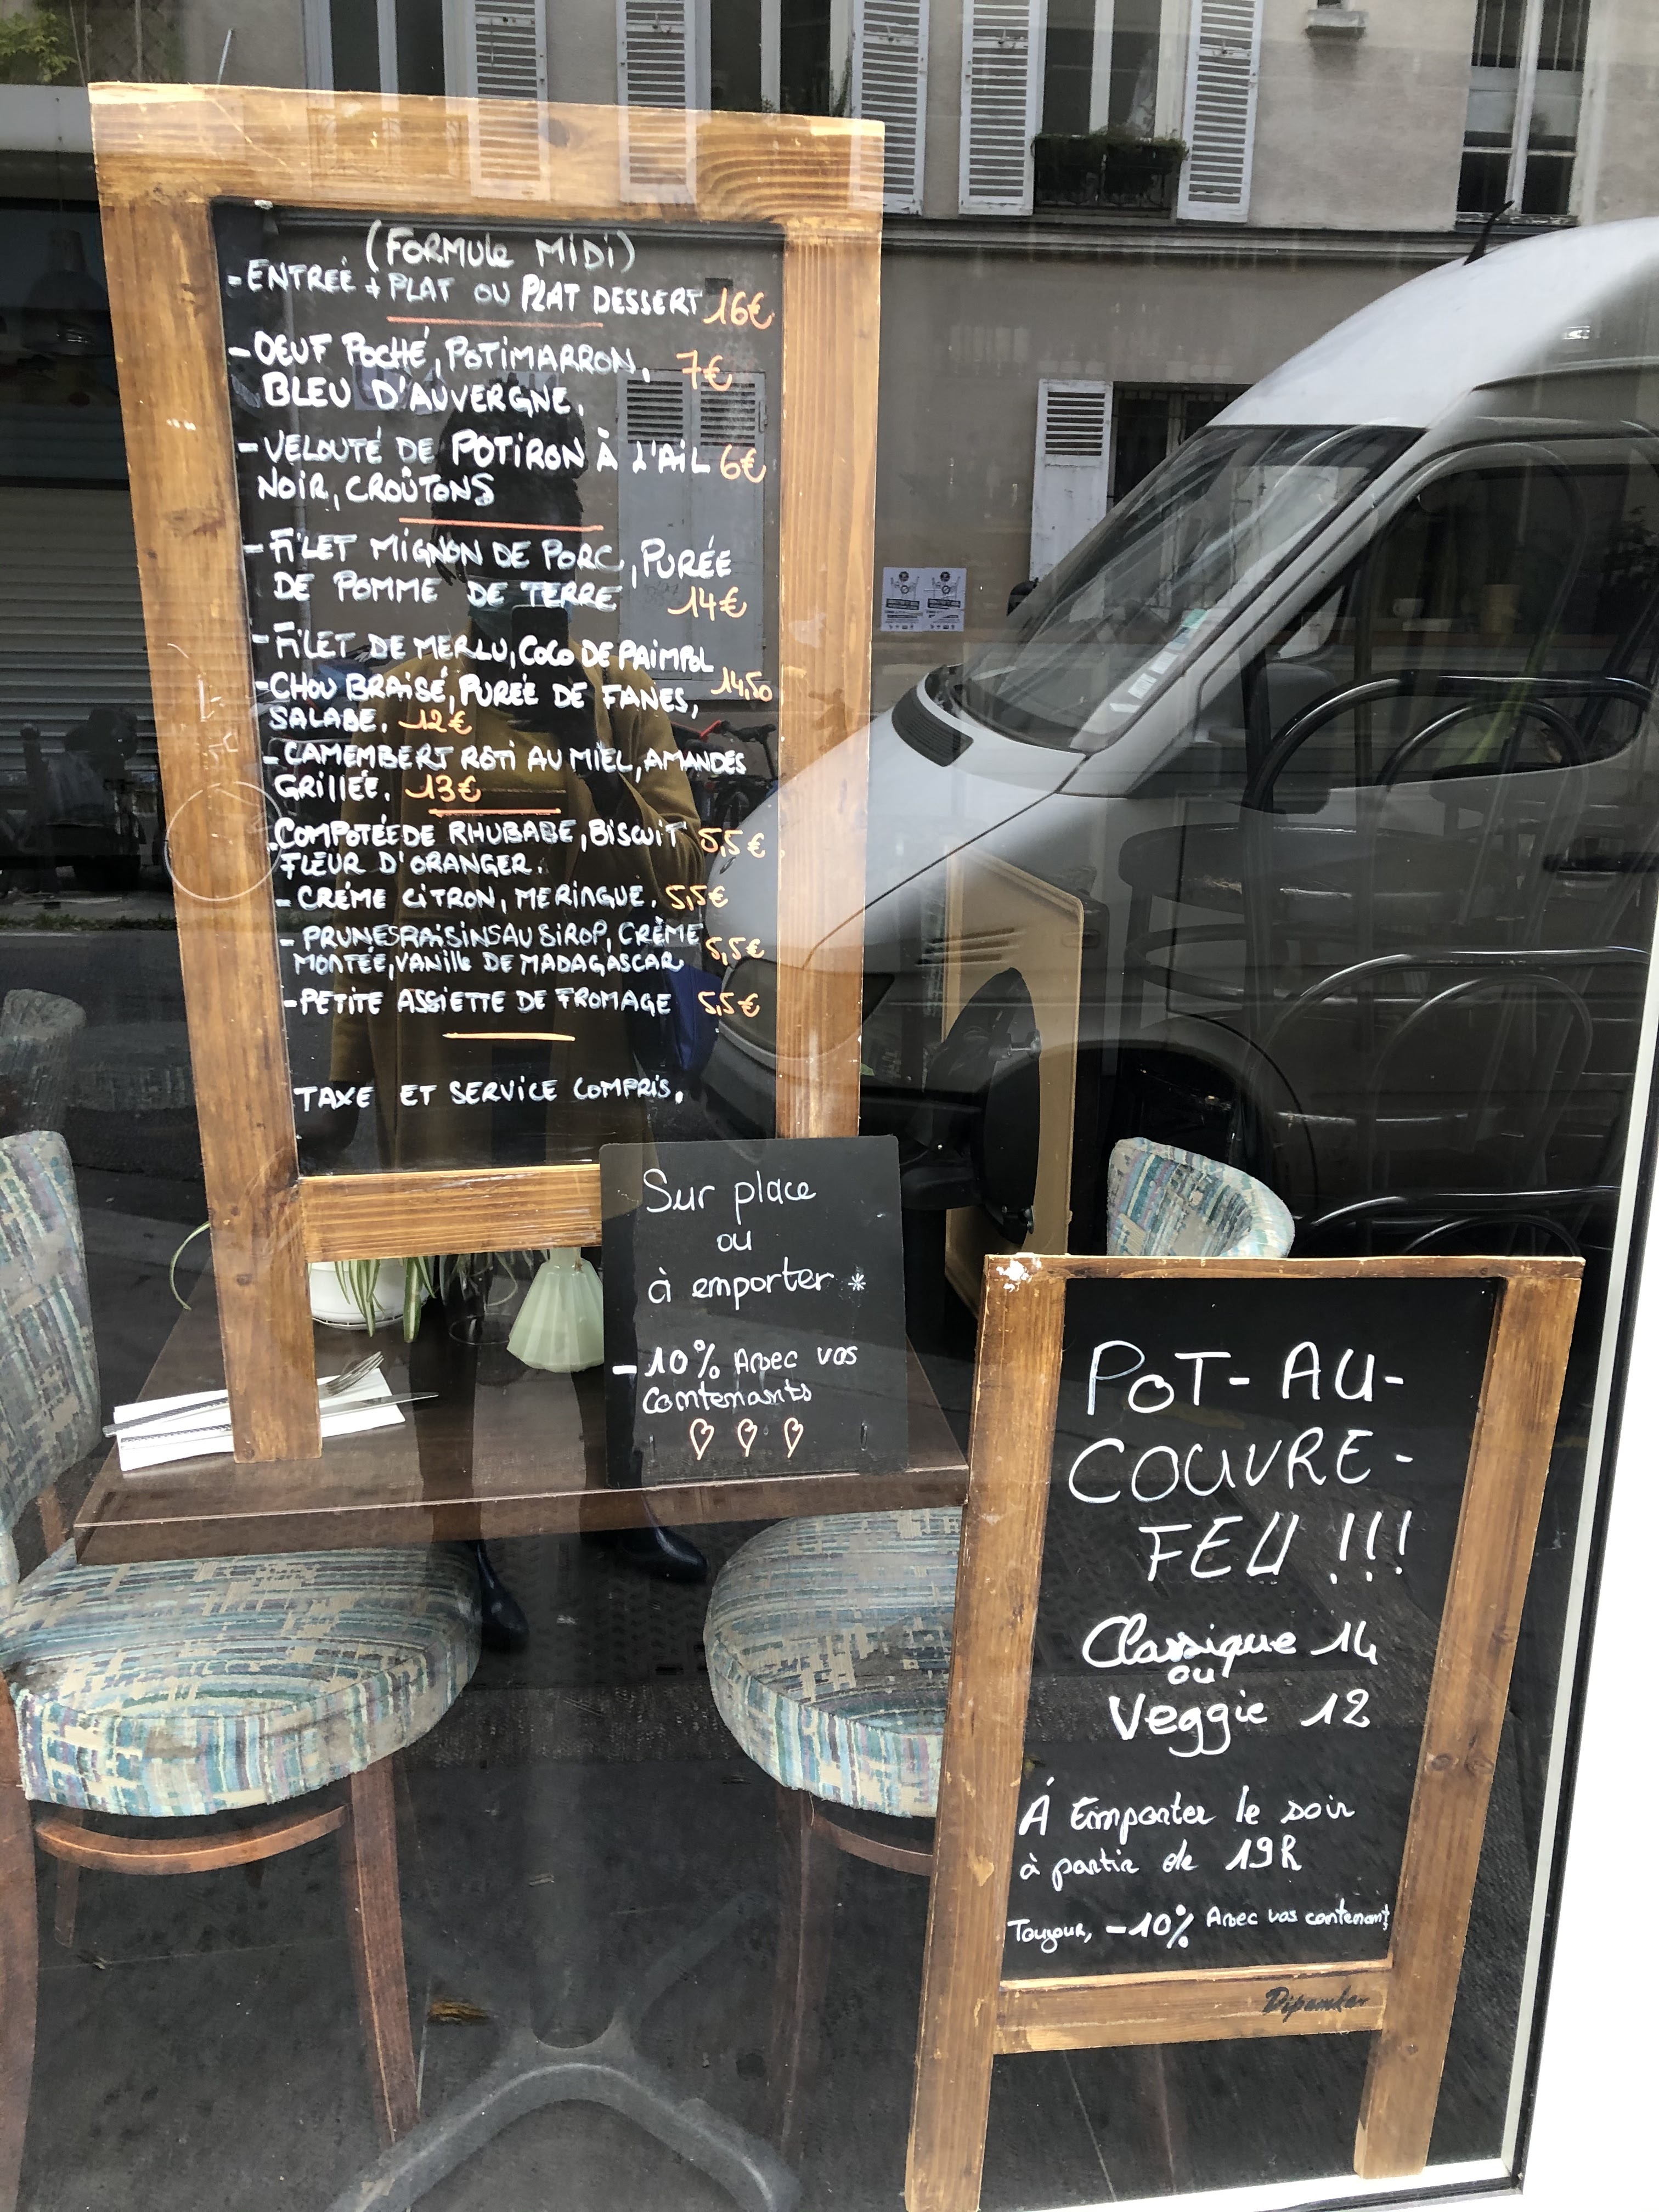 (FORMULE MIDI)
- ENTREÉ + PLAT OU PLAT DESSERT 16€
- OEUF POCHÉ, POTIMARRON, 7€
BLEU D'AUVERGNE.
- VELOUTÉ DE POTIRON À L'AIL 6€
NOIR, CROÛTONS
- FILET MIGNON DE PORC, PURÉE
DE POMME DE TERRE 14€
- FILET DE MERLU, COCO DE PAIMPOL
14,50
- CHOU BRAISÉ, PURÉE DE FANES,
SALABE. 12€
- CAMEMBERT ROTI AU MIEL, AMANDES
GRILLÉE. 13€
- COMPOTÉE DE RHUBABE, BISCUIT 5,5€
FLEUR D'ORANGER.
- CRÉME CITRON, MERINGUE. 5,5€
- PRUNES RAISINS AU SIROP, CRÈME 5,5€
MONTÉE, VANILLE DE MADAGASCAR
- PETITE ASSIETTE DE FROMAGE 5,5€
TAXE ET SERVICE COMPRIS.
Sur place
ou
à emporter *
- 10% Avec vos
contenants
POT-AU-
COUVRE-
FEU !!!
Classique 14
ou
Veggie 12
À Emporter le soir
à partir de 19h
Toujour, -10% Avec vos contenant